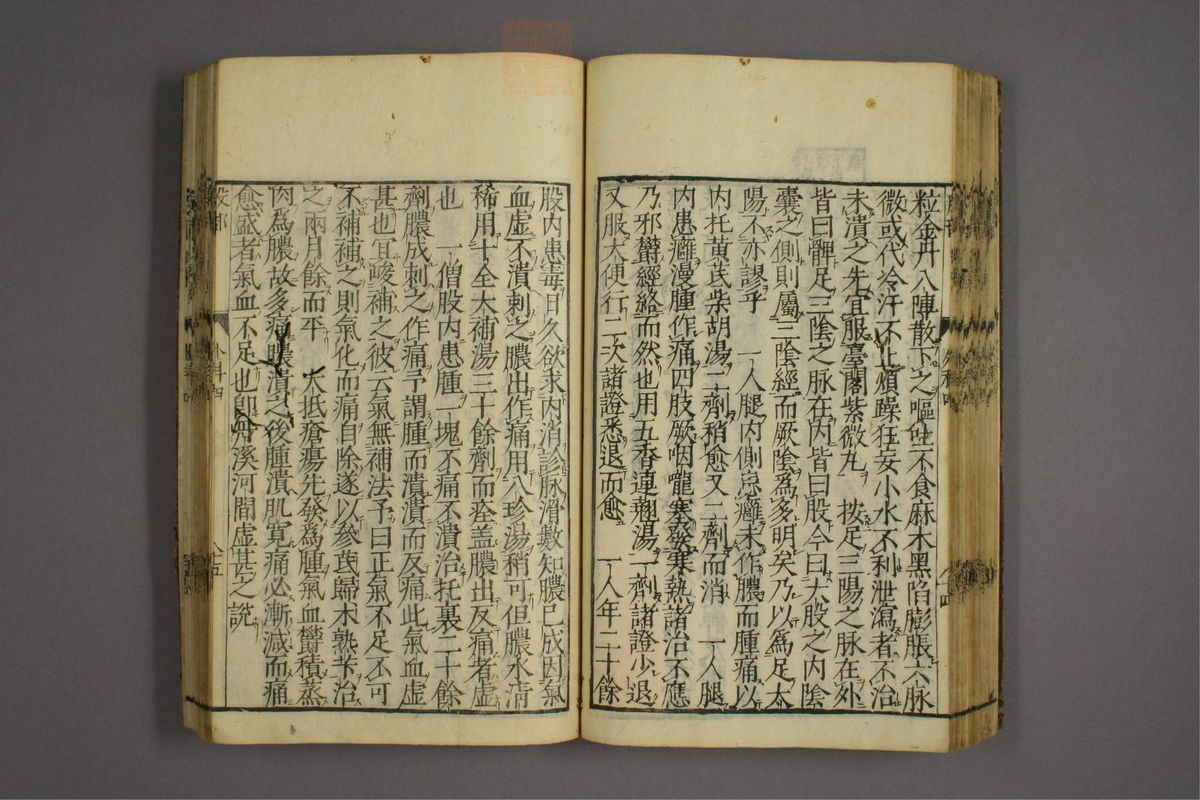 粒金丹八陣散下之嘔吐不食麻木黑陷膨脹六脉
微或代冷汗不止煩躁狂妄小水不利泄瀉者不治
未潰之先宜服臺閣紫微丸 按足三陽之脉在外
皆曰髀足三陰之脉在內皆曰股今曰大股之內陰
囊之側則屬三陰經而厥陰為多明矣乃以為足太
陽不亦謬乎 一人腿內側患癰未作膿而腫痛以
內托黃芪柴胡湯二劑稍愈又二劑而消 一人腿
內患癰漫腫作痛四肢厥咽嚨塞發寒熱諸治不應
乃邪欝經絡而然也用五香連翹湯一劑諸證少退
又服大便行二次諸證悉退而愈 一人年二十餘
股內患毒日久欲求內消診脉滑數知膿已成因氣
血虛不潰刺之膿出作痛用八珍湯稍可但膿水清
稀用十全大補湯三十餘劑而痊盖膿出反痛者虛
也 一僧股內患腫一塊不痛不潰治托裏二十餘
劑膿成刺之作痛予謂腫而潰潰而反痛此氣血虛
甚也宜峻補之彼云氣無補法予曰正氣不足不可
不補補之則氣化而痛自除遂以參芪歸术熟苄治
之兩月餘而平 大抵瘡瘍先發為腫氣血欝積蒸
肉為膿故多痛膿潰之後腫潰肌寬痛必漸減而痛
愈盛者氣血不足也即丹溪河間虛甚之說
股部
外科四
八五